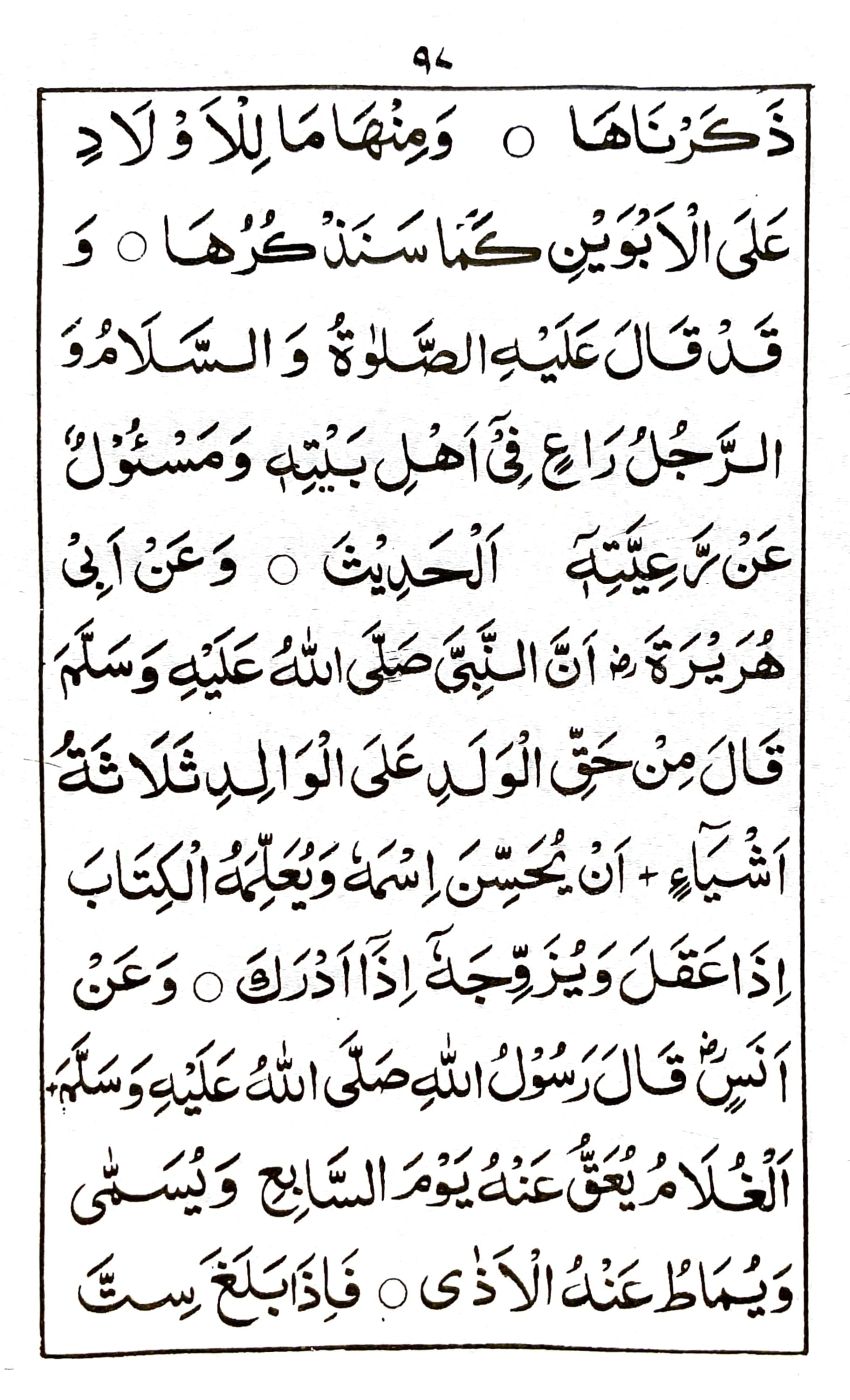 ۹۸
ذَكَرْنَاهَا ○ وَمِنْهَا مَا لِلْاَوْلَادِ
عَلَى الْاَبَوَيْنِ كَمَا سَنَذْكُرُهَا ○ وَ
قَدْ قَالَ عَلَيْهِ الصَّلٰوةُ وَالسَّلَامُ وَ
الرَّجُلُ رَاعٍ فِىْٓ اَهْلِ بَيْتِهٖ وَمَسْئُوْلٌ
عَنْ رَّعِيَّتِهٖٓ اَلْحَدِيْثَ ○ وَعَنْ اَبِىْ
هُرَيْرَةَ رض اَنَّ النَّبِىَّ صَلَّى اللّٰهُ عَلَيْهِ وَسَلَّمَ
قَالَ مِنْ حَقِّ الْوَلَدِ عَلَى الْوَالِدِ ثَلَاثَةُ
اَشْيَآءٍ + اَنْ يُحَسِّنَ اِسْمَهٗ وَيُعَلِّمَهُ الْكِتَابَ
اِذَا عَقَلَ وَيُزَوِّجَهٗٓ اِذَآ اَدْرَكَ ○ وَعَنْ
اَنَسٍ رض قَالَ رَسُوْلُ اللّٰهِ صَلَّى اللّٰهُ عَلَيْهِ وَسَلَّمَ +
اَلْغُلَامُ يُعَقُّ عَنْهُ يَوْمَ السَّابِعِ وَيُسَمّٰى
وَيُمَاطُ عَنْهُ الْاَذٰى ○ فَاِذَا بَلَغَ سِتَّ